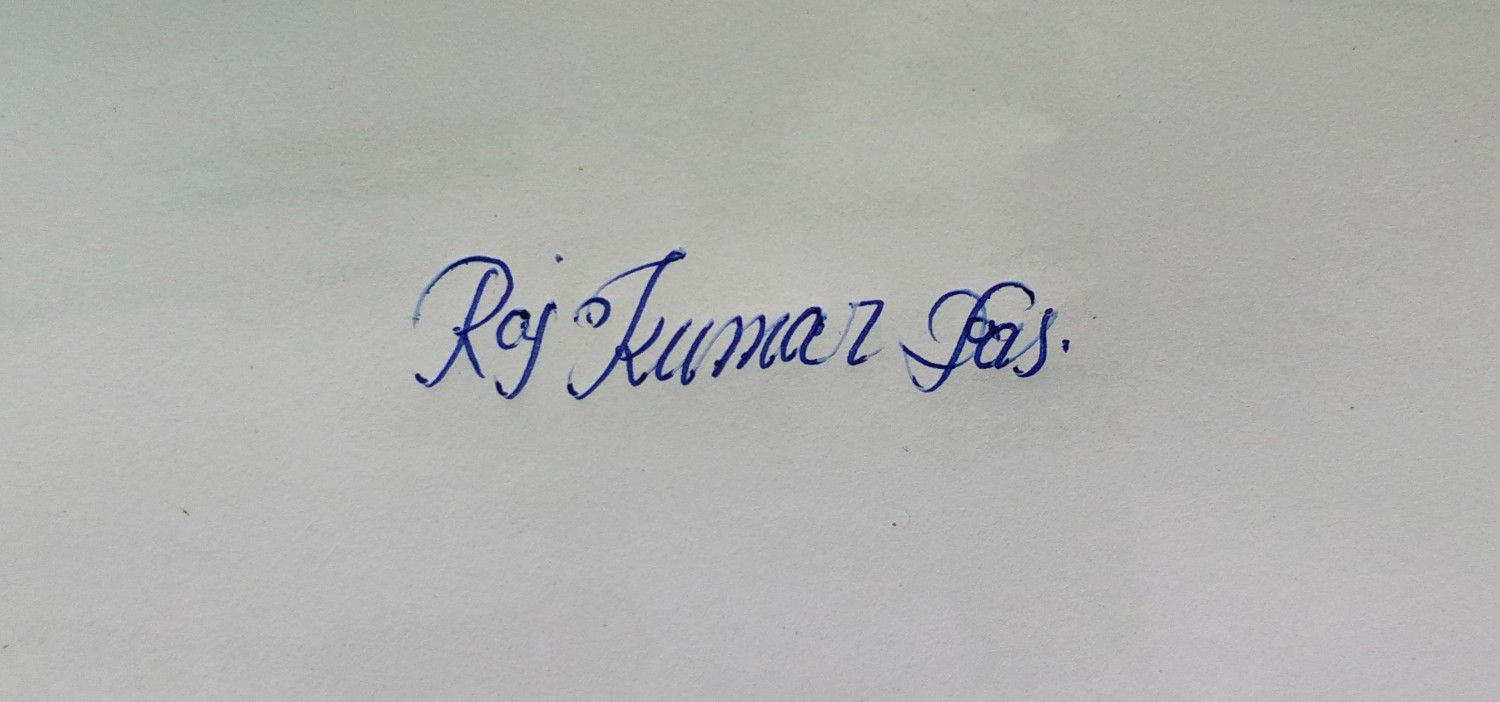 Raj Kumar Das.